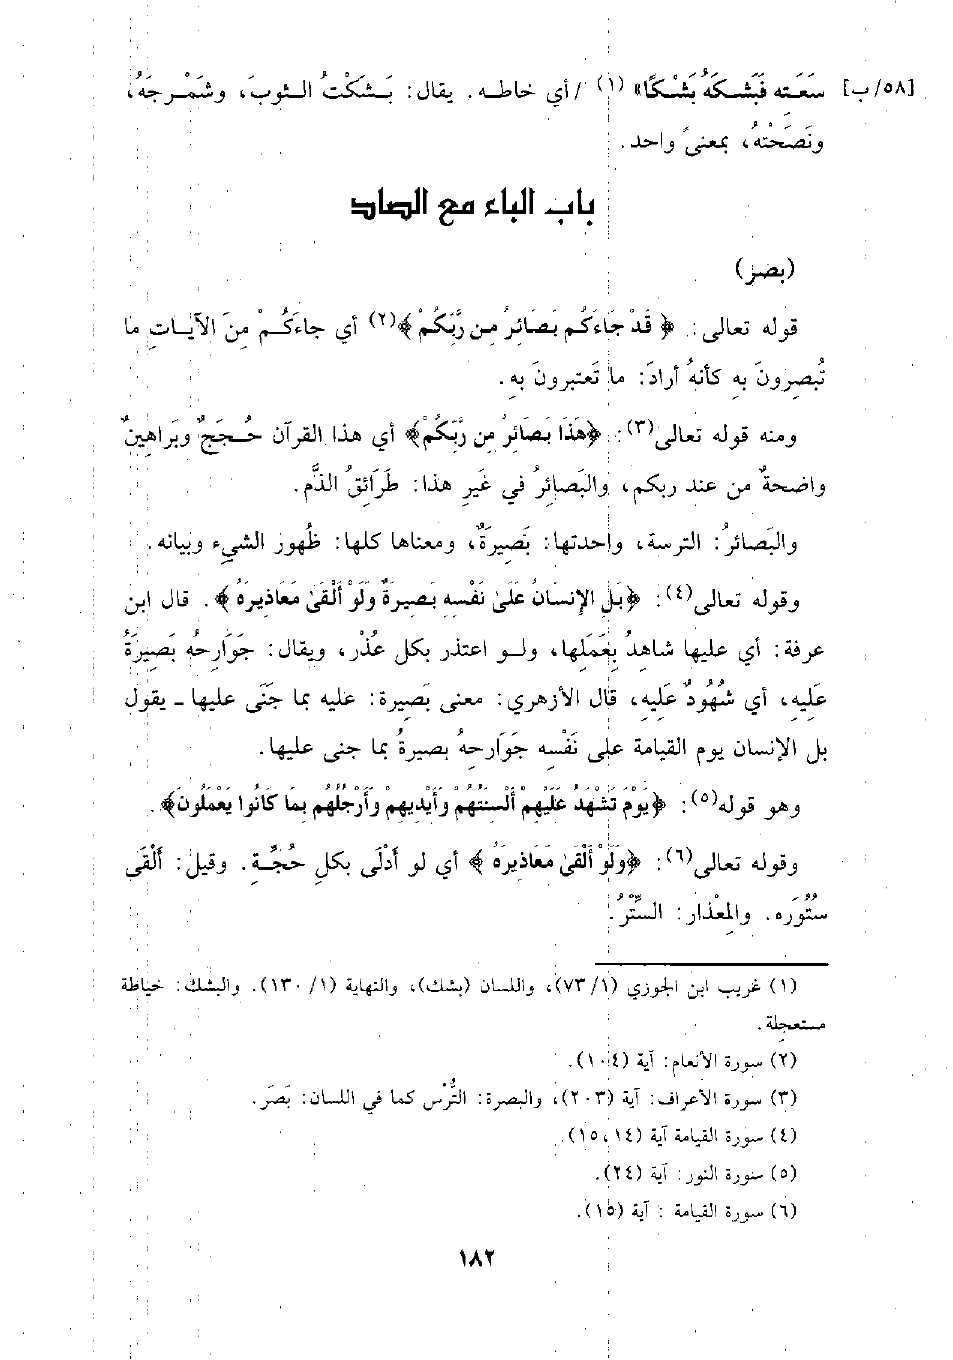 [٥٨/ب] سَعَتِه فَبَشَكَهُ بَشْكًا» (١) / أي خاطه. يقال: بَشَكْتُ الثوبَ، وشَمْرجتهُ،
ونَصَحْتهُ، بمعنىً واحد.
باب الباء مع الصاد
(بصر)
قوله تعالى: ﴿ قَدْ جَاءَكُم بَصَائِرُ مِن رَّبِّكُمْ ﴾(٢) أي جاءَكُمْ مِنَ الآيَاتِ ما
تُبصِرونَ بِهِ كأنهُ أرادَ: ما تَعتبرونَ بِهِ.
ومنه قوله تعالى(٣): ﴿هَذَا بَصَائِرُ مِن رَّبِّكُمْ﴾ أي هذا القرآن حُجَجٌ وبَراهينٌ
واضحةٌ من عند ربكم، والبَصائِرُ في غَيرِ هذا: طَرَائِقُ الذَّم.
والبَصائرُ: الترسة، واحدتها: بَصِيرَةٌ، ومعناها كلها: ظُهور الشيء وبيانه.
وقوله تعالى(٤): ﴿بَلِ الإِنسَانُ عَلَىٰ نَفْسِهِ بَصِيرَةٌ وَلَوْ أَلْقَىٰ مَعَاذِيرَهُ ﴾. قال ابن
عرفة: أي عليها شاهِدٌ بِعَمَلِها، ولو اعتذر بكل عُذْر، ويقال: جَوَارِحهُ بَصِيرَةٌ
عَلَيهِ، أي شُهُودٌ عَلَيهِ، قال الأزهري: معنى بَصيرة: عليه بما جَنَى عليها ـ يقول
بل الإنسان يوم القيامة على نَفْسِه جَوَارِحهُ بصيرةٌ بما جنى عليها.
وهو قوله(٥): ﴿يَوْمَ تَشْهَدُ عَلَيْهِمْ أَلْسِنَتُهُمْ وَأَيْدِيهِمْ وَأَرْجُلُهُم بِمَا كَانُوا يَعْمَلُونَ﴾.
وقوله تعالى(٦): ﴿وَلَوْ أَلْقَىٰ مَعَاذِيرَهُ ﴾ أي لو أَدْلَى بكلِ حُجَّةٍ. وقيل: أَلْقَى
سُتُورَه. والمِعْذار: السِّتْرُ.
(١) غريب ابن الجوزي (١/ ٧٣)، واللسان (بشك)، والنهاية (١/ ١٣٠). والبشك: خياطة
مستعجلة.
(٢) سورة الأنعام: آية (١٠٤).
(٣) سورة الأعراف: آية (٢٠٣)، والبصرة: التُّرْس كما في اللسان: بَصَر.
(٤) سورة القيامة آية (١٤، ١٥).
(٥) سورة النور: آية (٢٤).
(٦) سورة القيامة : آية (١٥).
١٨٢